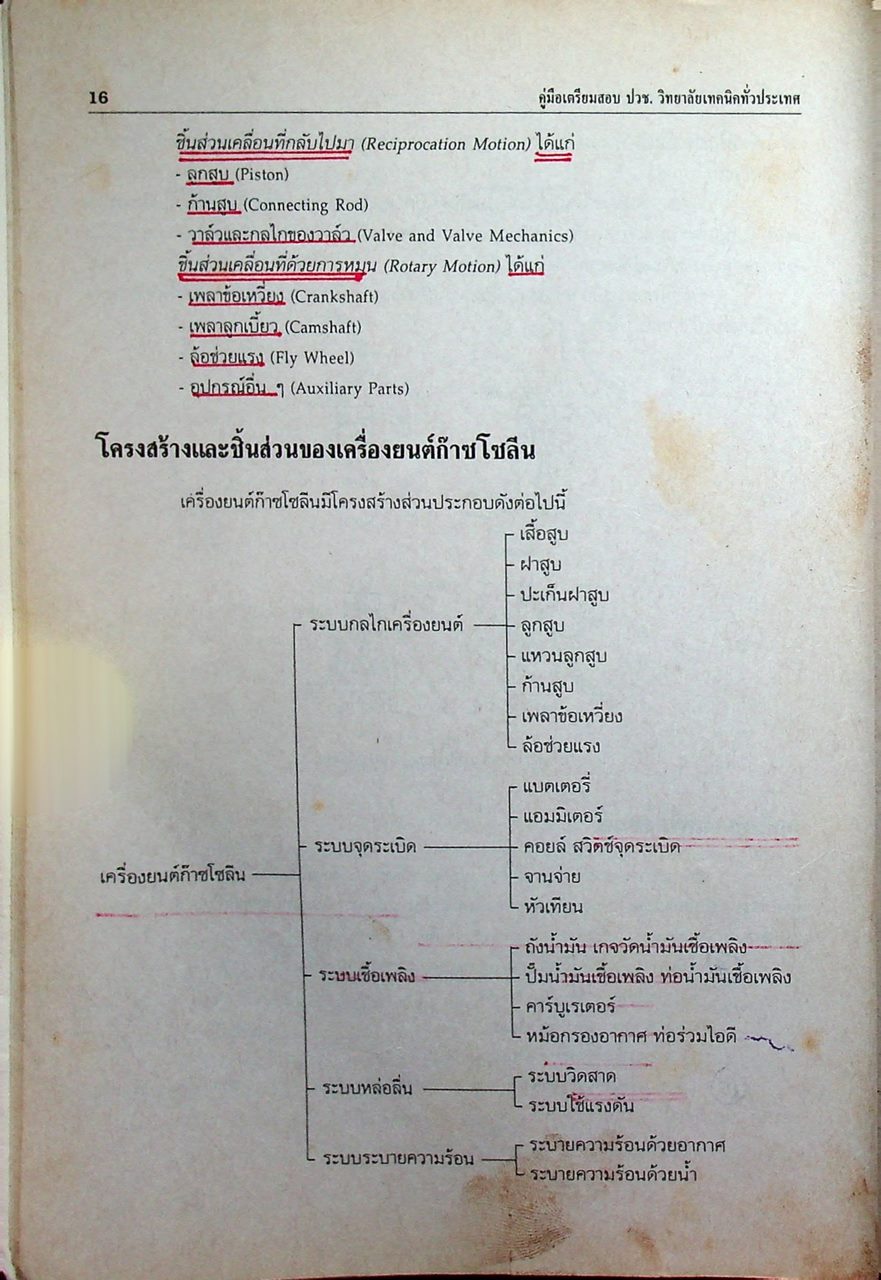 16
คู่มือเตรียมสอบ ปวช. วิทยาลัยเทคนิคทั่วประเทศ
ชิ้นส่วนเคลื่อนที่กลับไปมา (Reciprocation Motion) ได้แก่
- ลูกสูบ (Piston)
- ก้านสูบ (Connecting Rod)
- วาล์วและกลไกของวาล์ว (Valve and Valve Mechanics)
ชิ้นส่วนเคลื่อนที่ด้วยการหมุน (Rotary Motion) ได้แก่
- เพลาข้อเหวี่ยง (Crankshaft)
- เพลาลูกเบี้ยว (Camshaft)
- ล้อช่วยแรง (Fly Wheel)
- อุปกรณ์อื่น ๆ (Auxiliary Parts)
โครงสร้างและชิ้นส่วนของเครื่องยนต์ก๊าซโซลีน
เครื่องยนต์ก๊าซโซลีนมีโครงสร้างส่วนประกอบดังต่อไปนี้
เครื่องยนต์ก๊าซโซลีน
ระบบกลไกเครื่องยนต์
เสื้อสูบ
ฝาสูบ
ปะเก็นฝาสูบ
ลูกสูบ
แหวนลูกสูบ
ก้านสูบ
เพลาข้อเหวี่ยง
ล้อช่วยแรง
ระบบจุดระเบิด
แบตเตอรี่
แอมมิเตอร์
คอยล์ สวิตช์จุดระเบิด
จานจ่าย
หัวเทียน
ระบบเชื้อเพลิง
ถังน้ำมัน เกจวัดน้ำมันเชื้อเพลิง
ปั๊มน้ำมันเชื้อเพลิง ท่อน้ำมันเชื้อเพลิง
คาร์บูเรเตอร์
หม้อกรองอากาศ ท่อร่วมไอดี
ระบบหล่อลื่น
ระบบวิดสาด
ระบบใช้แรงดัน
ระบบระบายความร้อน
ระบายความร้อนด้วยอากาศ
ระบายความร้อนด้วยน้ำ